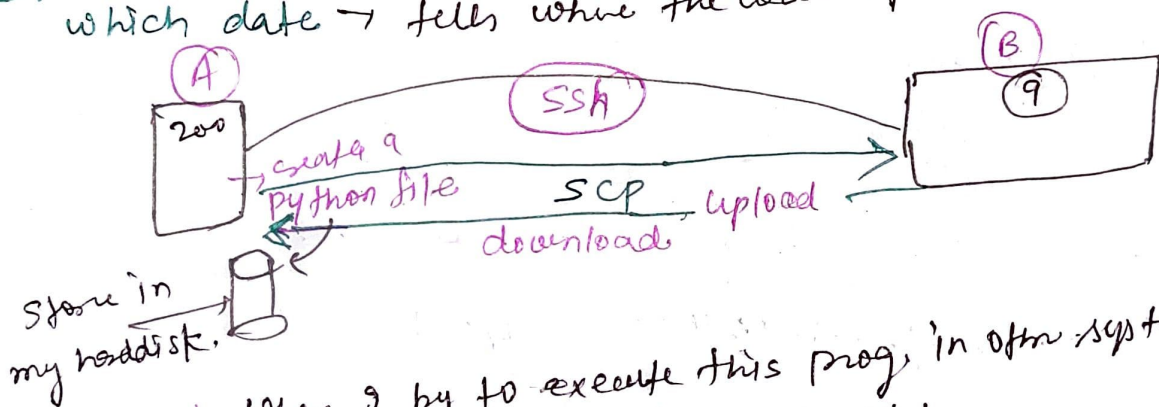 which date → tells where the
A
B
200
9
ssh
→ create a
python file
SCP
upload
download
Store in
my harddisk.
to execute this prog, in other syst